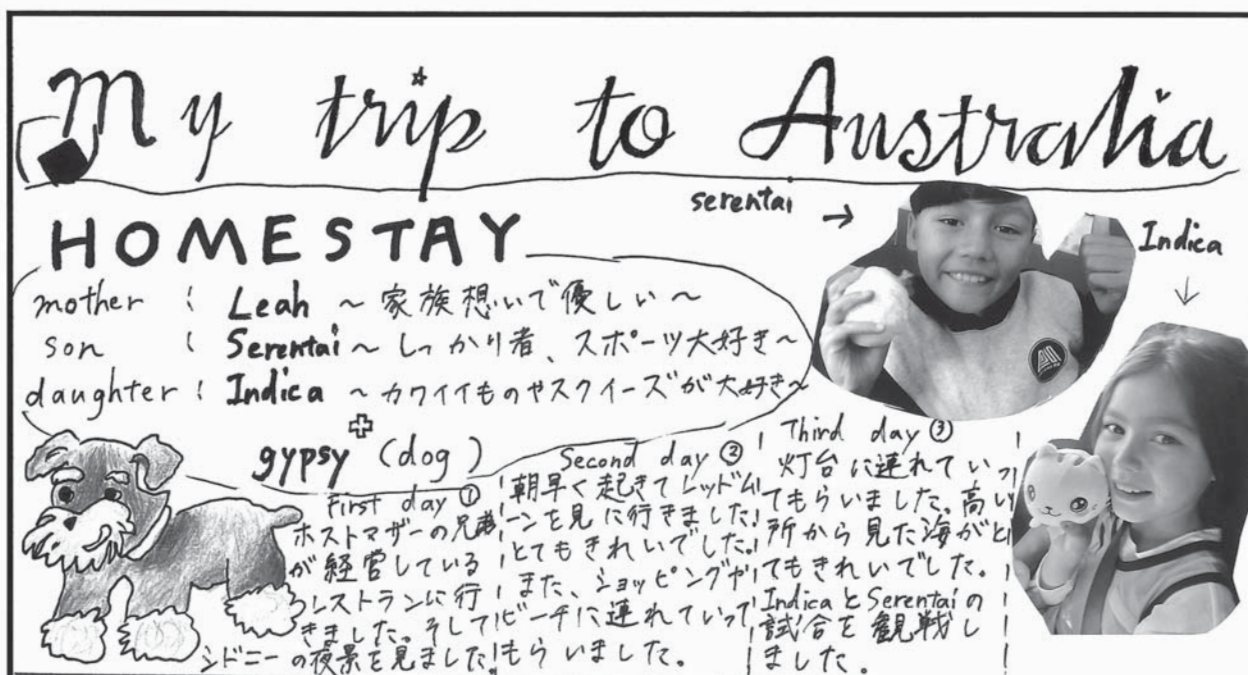 My trip to Australia
serentai →
Indica
↓
HOMESTAY
mother : Leah ~ 家族想いで優しい ~
son : Serentai ~ しっかり者、スポーツ大好き ~
daughter : Indica ~ カワイイものやスクイーズが大好き ~
+
gypsy (dog)
First day ①
ホストマザーの兄弟
が経営している
レストランに行
きました。そして
シドニーの夜景を見ました!
Second day ②
朝早く起きてレッドム
ーンを見に行きました!
とてもきれいでした。
また、ショッピングや
ビーチに連れていって
もらいました。
Third day ③
灯台に連れていっ
てもらいました。高い
所から見た海がと
てもきれいでした。
IndicaとSerentaiの
試合を観戦し
ました。